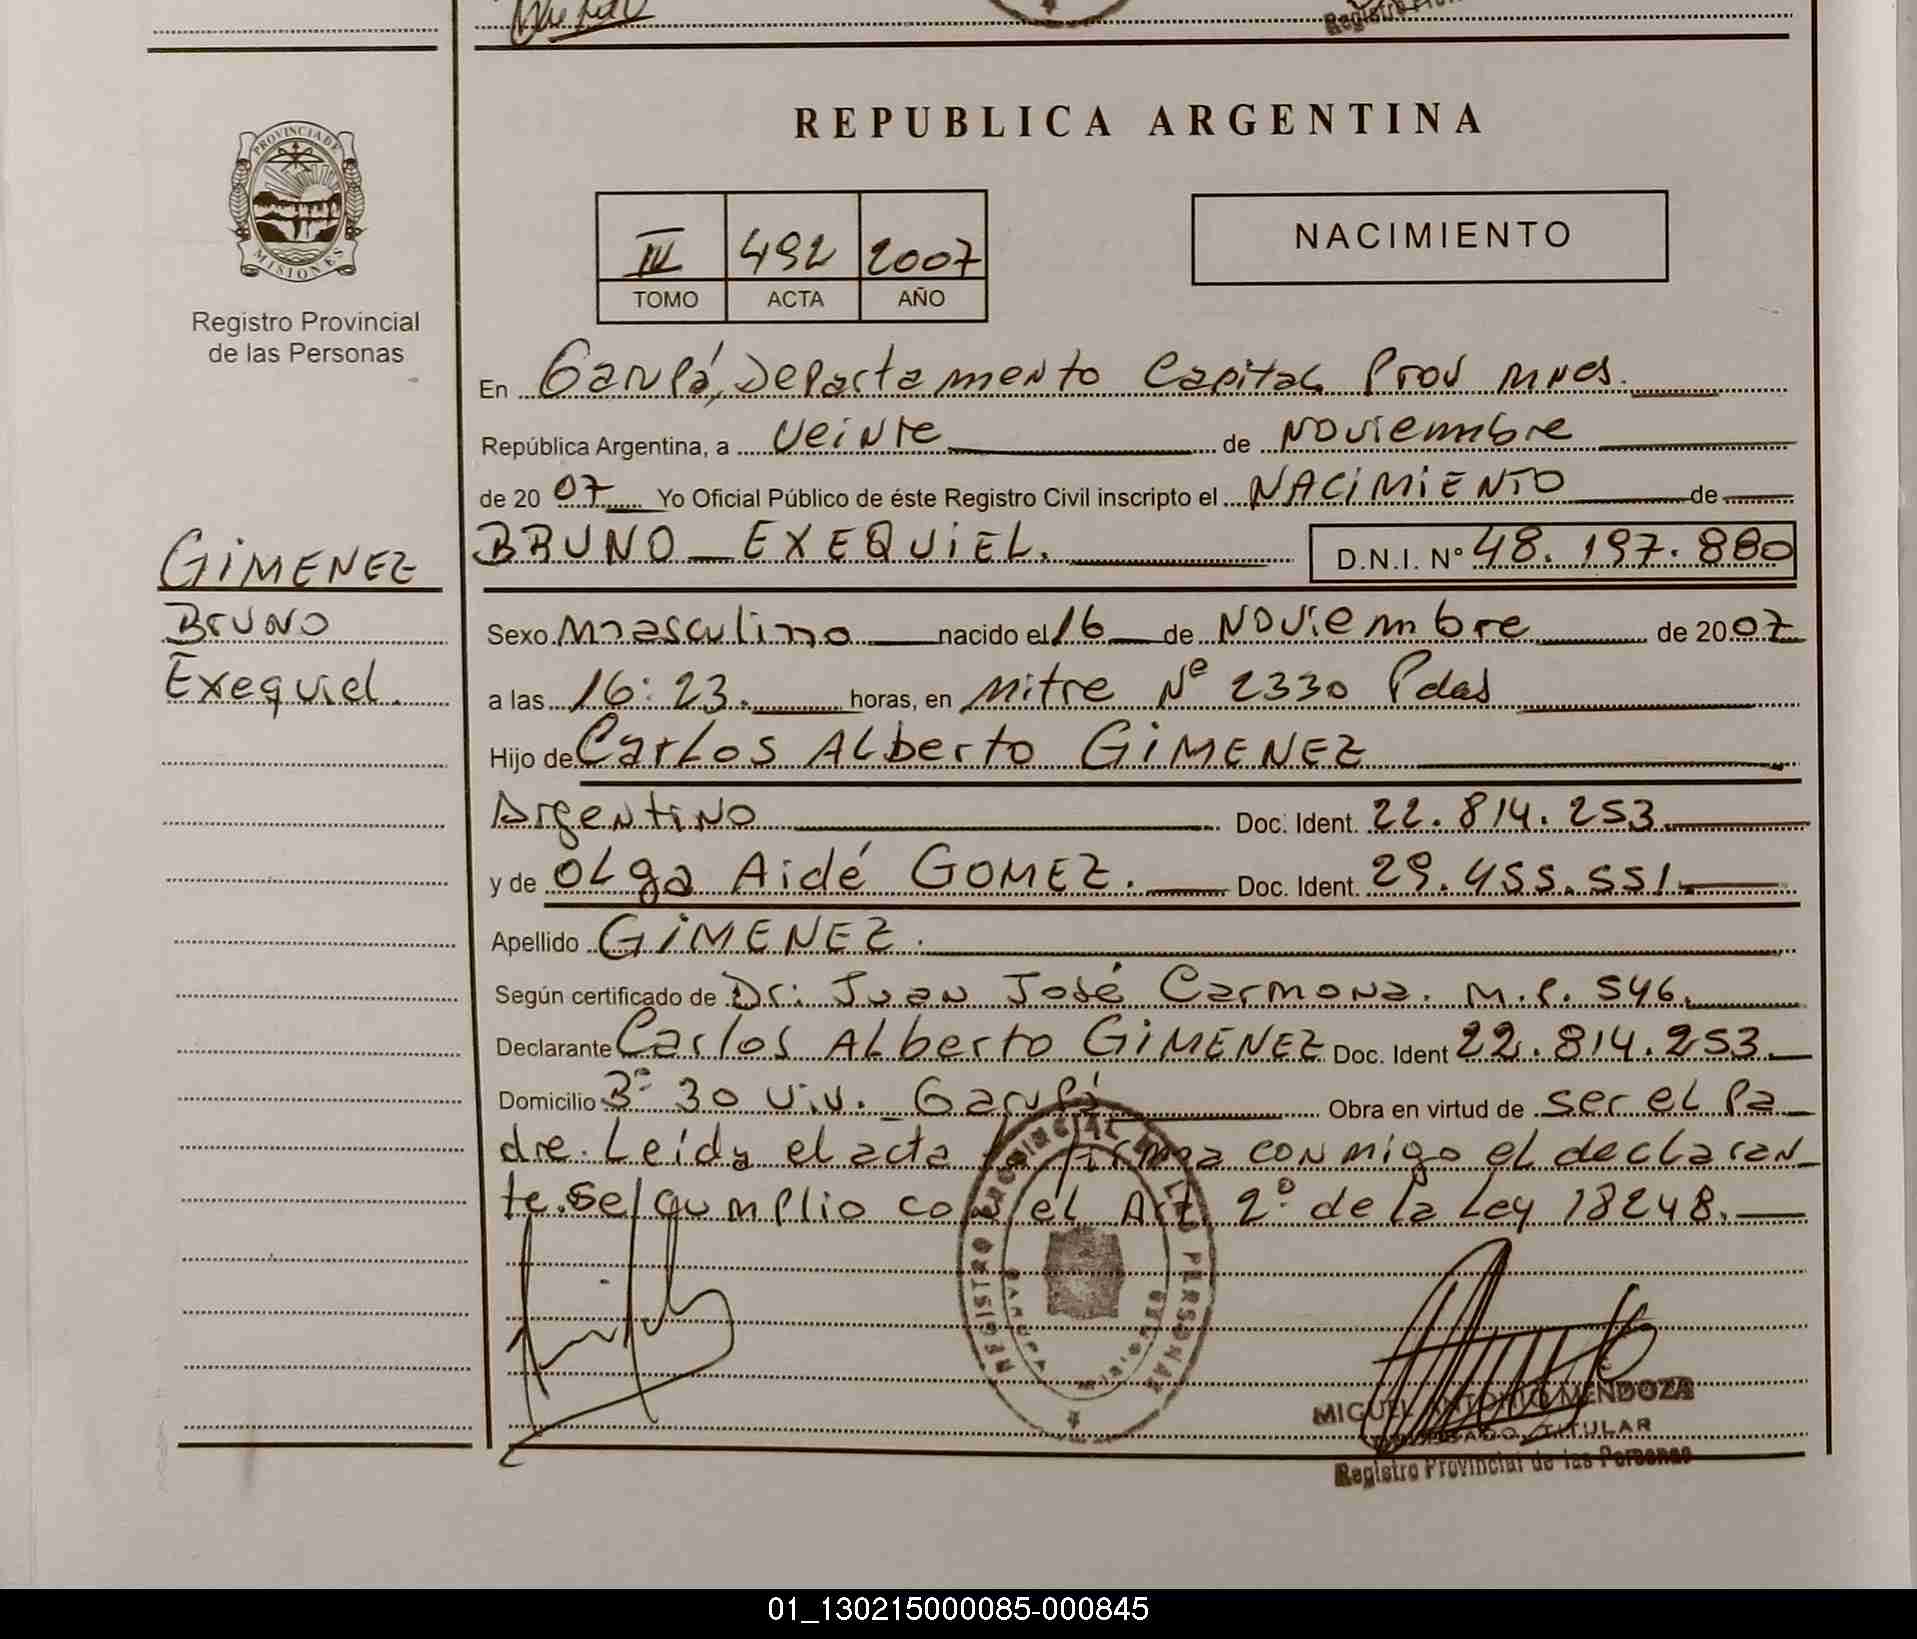 REPUBLICA ARGENTINA
PROVINCIA DE
MISIONES
Registro Provincial
de las Personas
III 492 2007
TOMO ACTA AÑO
NACIMIENTO
En Garupá, Departamento Capital Prov Mnes.
República Argentina, a veinte de Noviembre
de 2007 Yo Oficial Público de éste Registro Civil inscripto el NACIMIENTO de
BRUNO EXEQUIEL. D.N.I. Nº 48.197.880
GIMENEZ
Bruno
Exequiel.
Sexo Masculino nacido el 16 de Noviembre de 2007
a las 16:23. horas, en Mitre Nº 2330 Pdas
Hijo de Carlos Alberto GIMENEZ
Argentino Doc. Ident. 22.814.253.
y de Olga Aidé GOMEZ. Doc. Ident. 29.455.551.
Apellido GIMENEZ.
Según certificado de Dr. Juan José Carmona. M.P. 546.
Declarante Carlos Alberto GIMENEZ Doc. Ident 22.814.253.
Domicilio Bº 30 Viv. Garupá Obra en virtud de ser el Pa
dre. Leída el acta la firma conmigo el declaran
te. Se cumplio con el Art. 2º de la Ley 18248.
REGISTRO PROVINCIAL DE LAS PERSONAS
MIGUEL ANTONIO MENDOZA
TITULAR
Registro Provincial de las Personas
01_130215000085-000845